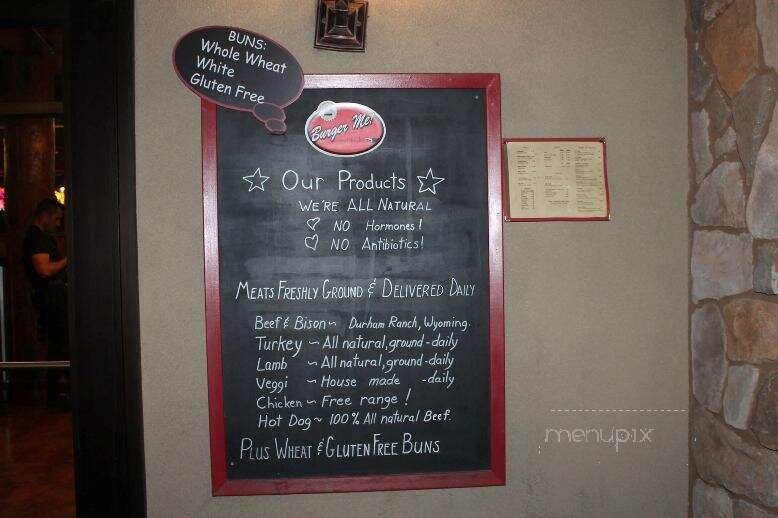 BUNS:
Whole Wheat
White
Gluten Free
Burger Me!
Our Products
WE'RE ALL NATURAL
NO Hormones!
NO Antibiotics!
MEATS FRESHLY GROUND & DELIVERED DAILY
Beef & Bison ~ Durham Ranch, Wyoming.
Turkey ~ All natural, ground - daily
Lamb ~ All natural, ground - daily
Veggi ~ House made - daily
Chicken ~ Free range!
Hot Dog ~ 100% All natural Beef.
PLUS WHEAT & GLUTEN FREE BUNS
menupix